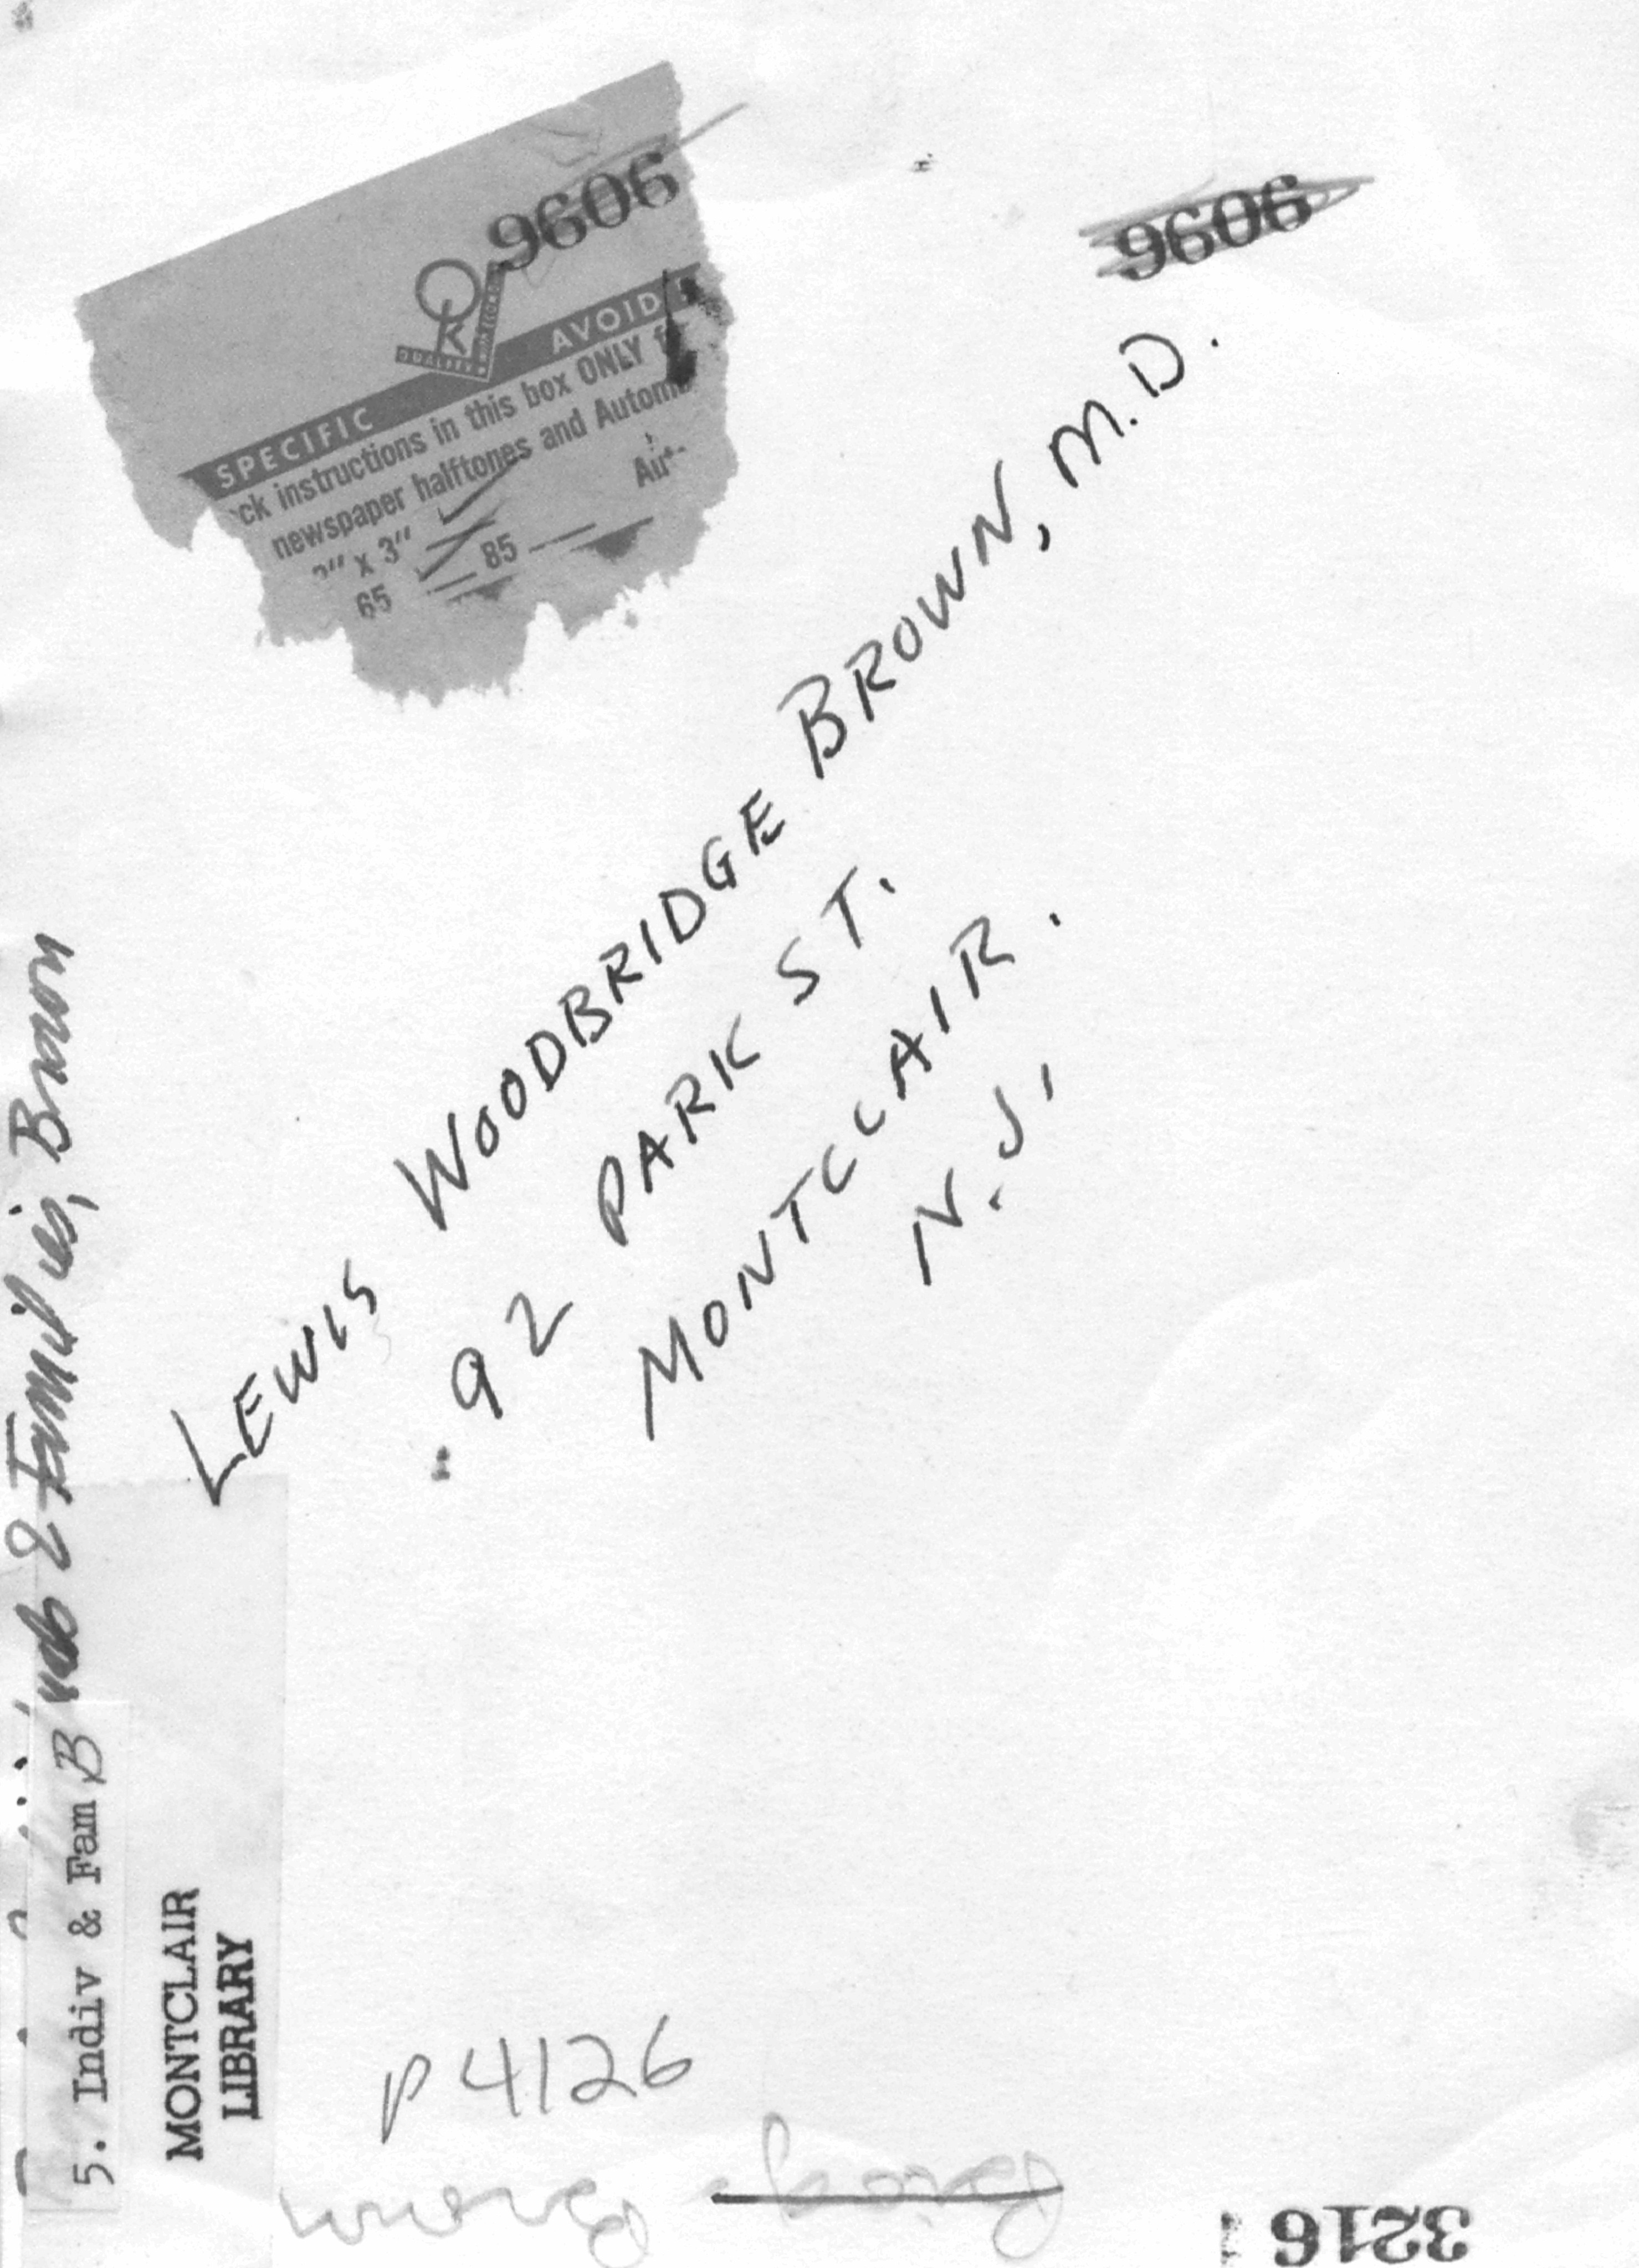 9606
9606
QUALITY
SPECIFIC AVOID
ck instructions in this box ONLY
newspaper halftones and Autom
" x 3"
65 85
LEWIS WOODBRIDGE BROWN, M.D.
92 PARK ST.
MONTCLAIR.
N.J.
& Families, Brown
5. Indiv & Fam B
MONTCLAIR
LIBRARY
P4126
Brown
3216